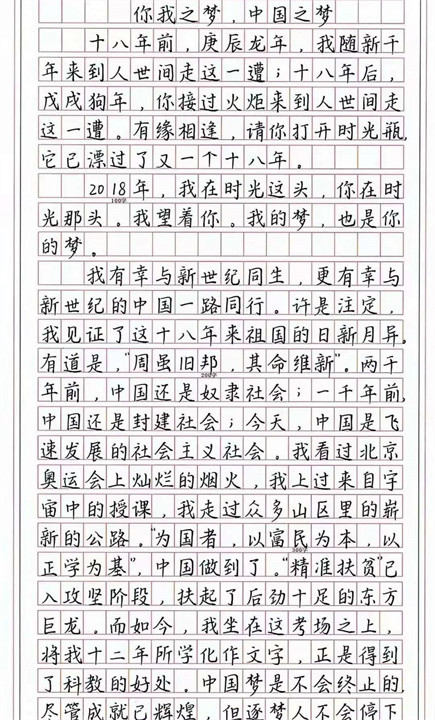 你我之梦，中国之梦
十八年前，庚辰龙年，我随新千
年来到人世间走这一遭；十八年后，
戊戌狗年，你接过火炬来到人世间走
这一遭。有缘相逢，请你打开时光瓶，
它已漂过了又一个十八年。
2018年，我在时光这头，你在时
100字
光那头。我望着你。我的梦，也是你
的梦。
我有幸与新世纪同生，更有幸与
新世纪的中国一路同行。许是注定，
我见证了这十八年来祖国的日新月异。
有道是，“周虽旧邦，其命维新”。两千
200字
年前，中国还是奴隶社会；一千年前，
中国还是封建社会；今天，中国是飞
速发展的社会主义社会。我看过北京
奥运会上灿烂的烟火，我上过来自宇
宙中的授课，我走过众多山区里的崭
新的公路。“为国者，以富民为本，以
300字
正学为基”，中国做到了。“精准扶贫”已
入攻坚阶段，扶起了后劲十足的东方
巨龙。而如今，我坐在这考场之上，
将我十二年所学化作文字，正是得到
了科教的好处。中国梦是不会终止的，
尽管成就已辉煌，但逐梦人不会停下